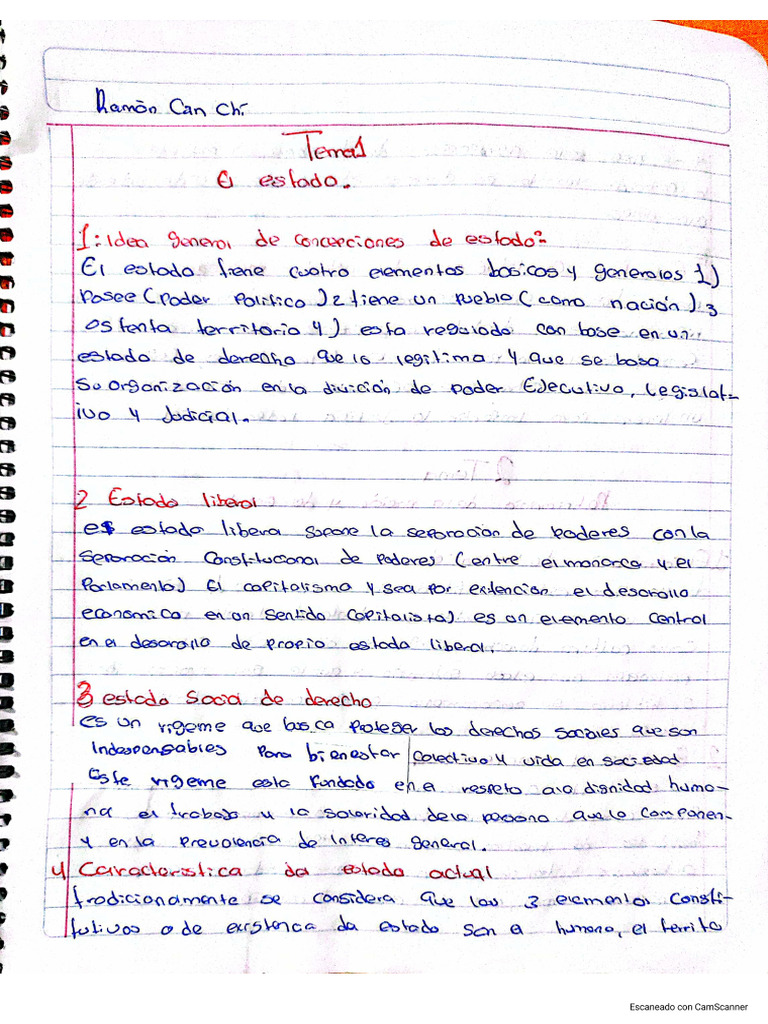 Ramón Can Chí.
Tema1
El estado.
1: Idea general de concepciones de estado?
El estado tiene cuatro elementos basicos y generales 1)
Posee (Poder Politico) 2 tiene un Pueblo (como nación) 3
ostenta territorio 4) esta regulado con base en un
estado de derecho que lo legitima y que se basa
su organización en la división de poder Ejecutivo, Legislat-
ivo y Judicial.
2 Estado liberal
es estado libera supone la separación de poderes con la
separación Constitucional de Poderes (entre el monarca y el
Parlamento) El capitalismo y sea por extención el desarollo
economico en un sentido capitalista) es un elemento central
en el desarollo de propio estado liberal.
3 estado social de derecho
es un rigeme que busca proteger los derechos sociales que son
Indespensables Para bienestar colectivo y vida en sociedad
Este rigeme esta fundado en el respeto a la dignidad huma-
na el trabajo y la solaridad de la persona que lo componen-
y en la prevalencia de interes general.
4 Caracteristica del estado actual
tradicionamente se considera que los 3 elementos consti-
tutivos o de existenca da estado son e humano, el territo
Escaneado con CamScanner